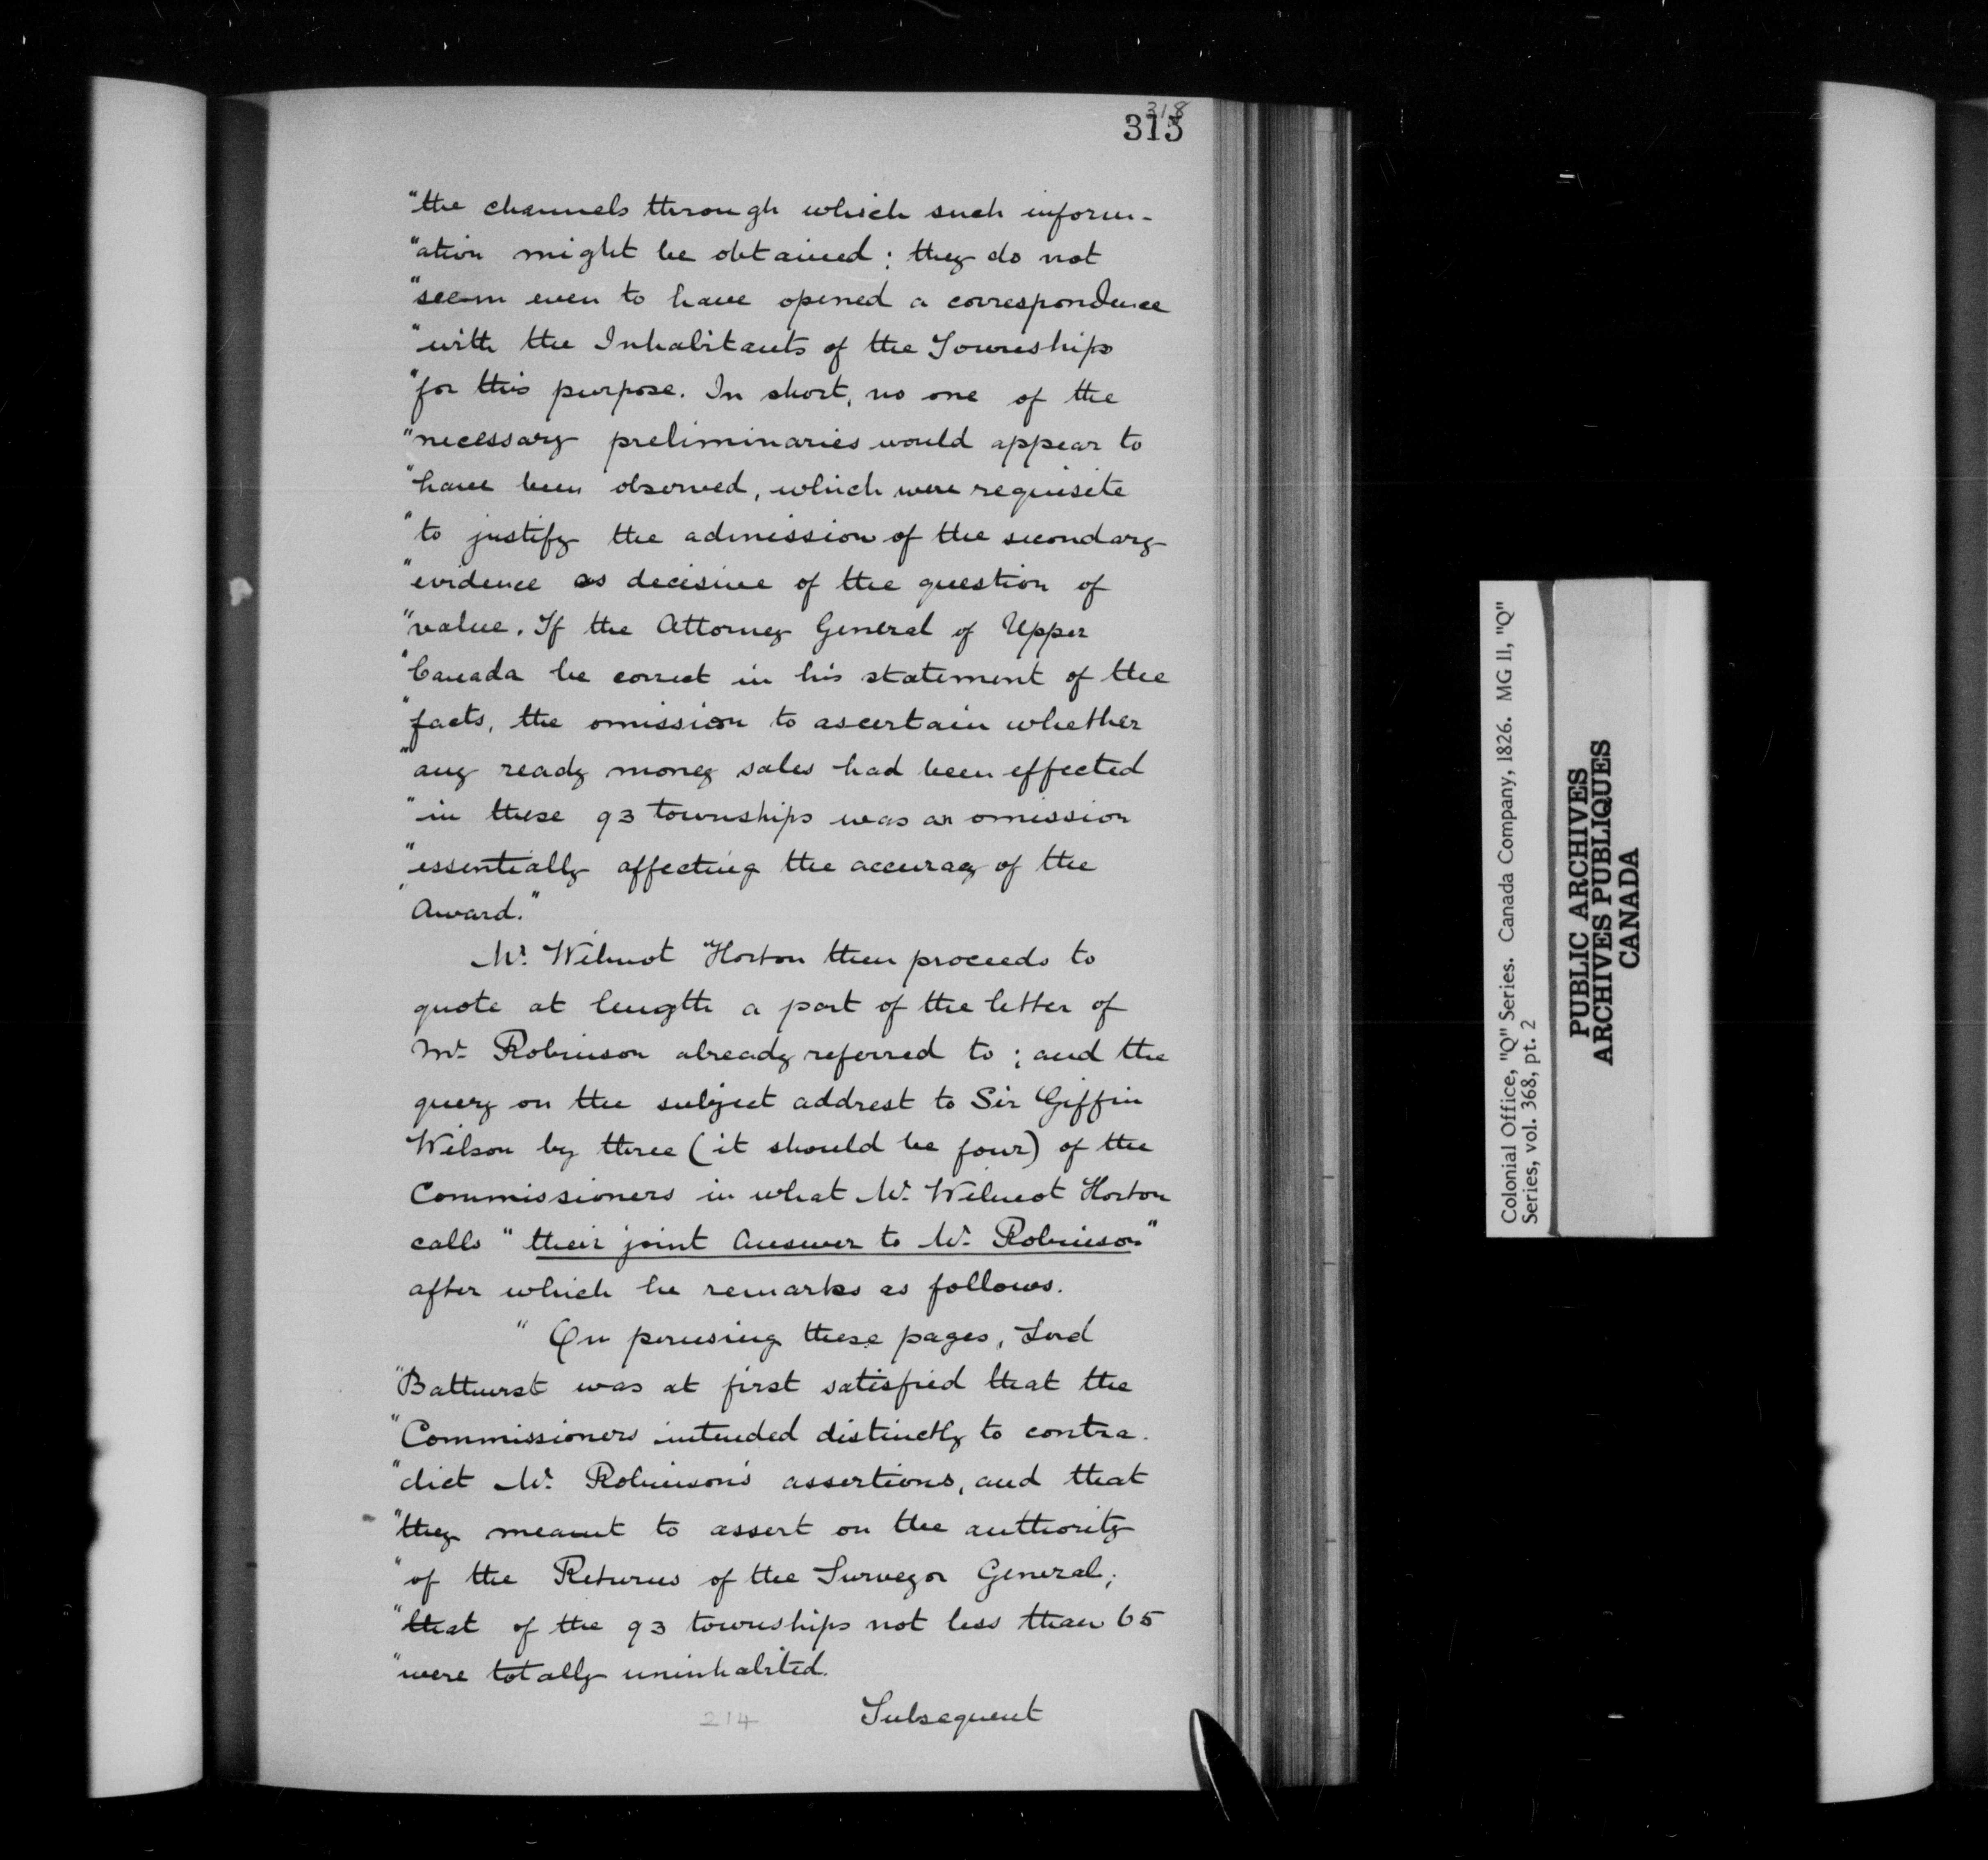 318
315
"the channels through which such inform-
"ation might be obtained; they do not
"seem even to have opened a correspondence
"with the Inhabitants of the Townships
"for this purpose. In short, no one of the
"necessary preliminaries would appear to
"have been observed, which were requisite
"to justify the admission of the secondary
"evidence as decisive of the question of
"value. If the Attorney General of Upper
"Canada be correct in his statement of the
"facts, the omission to ascertain whether
"any ready money sales had been effected
"in these 93 townships was an omission
"essentially affecting the accuracy of the
"Award."
Mr. Wilmot Horton then proceeds to
quote at length a part of the letter of
Mr. Robinson already referred to; and the
query on the subject addrest to Sir Giffin
Wilson by three (it should be four) of the
Commissioners in what Mr. Wilmot Horton
calls "their joint Answer to Mr. Robinson"
after which he remarks as follows.
"On perusing these pages, Lord
"Bathurst was at first satisfied that the
"Commissioners intended distinctly to contra-
"dict Mr. Robinson's assertions, and that
"they meant to assert on the authority
"of the Returns of the Surveyor General;
"that of the 93 townships not less than 65
"were totally uninhabited.
Subsequent
214
Colonial Office, "Q" Series. Canada Company, 1826. MG 11, "Q"
Series, vol. 368, pt. 2
PUBLIC ARCHIVES
ARCHIVES PUBLIQUES
CANADA